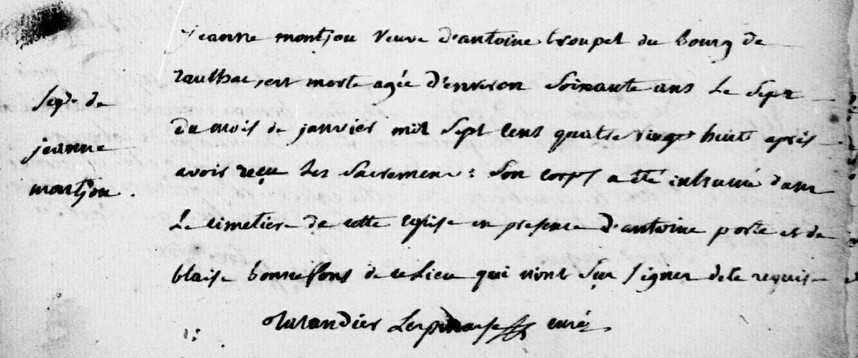 jeanne montjou veuve d'antoine troupel du bourg de
raulhac, est morte agée d'environ soixante ans le sept
du mois de janvier mil sept cens quatre vingt huit apres
avoir reçu les sacremens : son corps a été inhumé dans
le cimetiere de cette eglise en presence d'antoine porte et de
blaise bonnefons de ce lieu qui n'ont su signer de ce requis
curé
sepre de
jeanne
montjou .